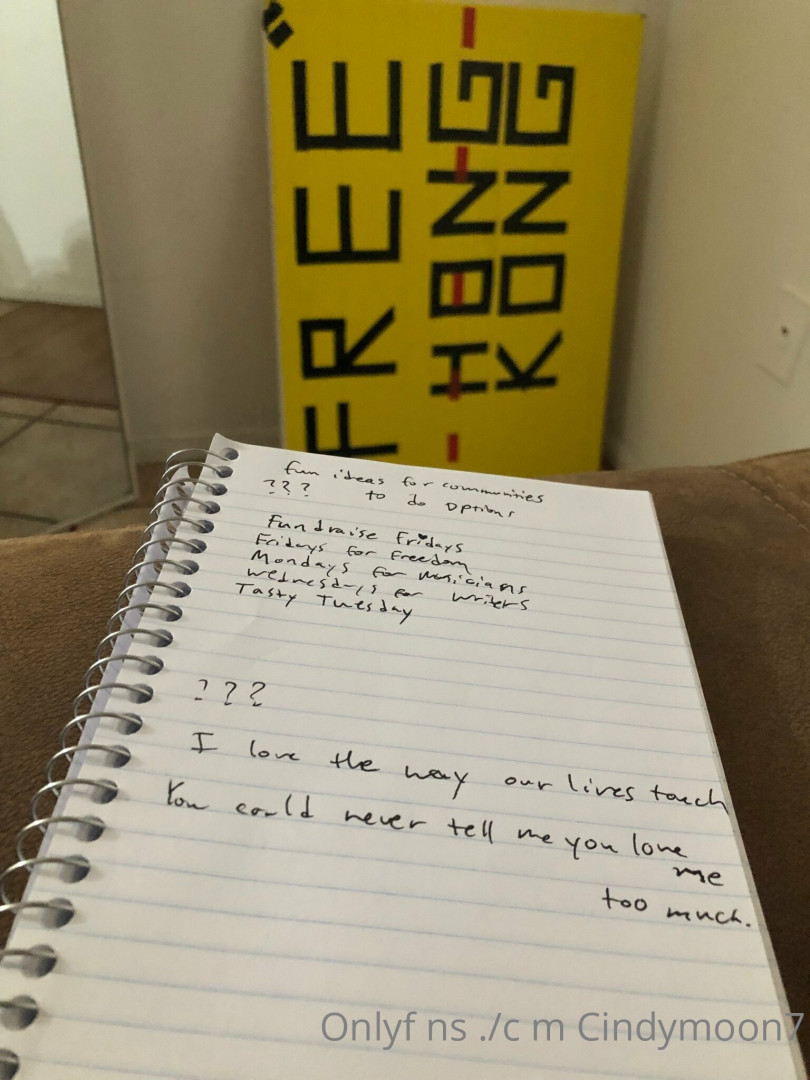 FREE
HONG
KONG
fun ideas for communities
??? to do options
Fundraise Fridays
Fridays for Freedom
Mondays for Musicians
Wednesdays for writers
Tasty Tuesday
???
I love the way our lives touch
You could never tell me you love
me
too much.
Onlyf ns ./c m Cindymoon7